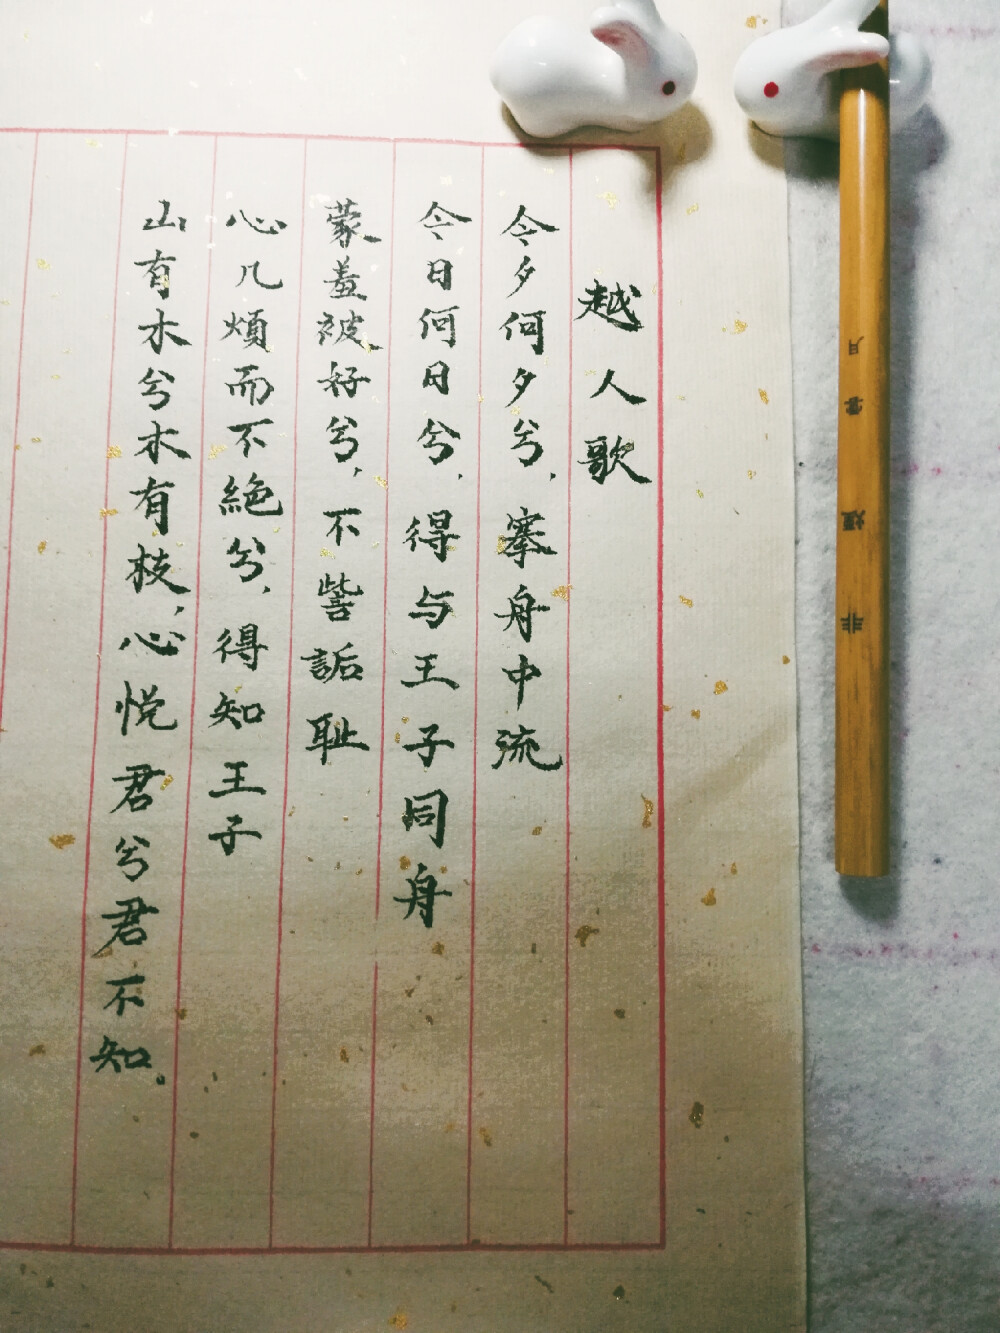 越人歌
今夕何夕兮，搴舟中流
今日何日兮，得与王子同舟
蒙羞被好兮，不訾詬耻
心几煩而不絕兮，得知王子
山有木兮木有枝，心悦君兮君不知。